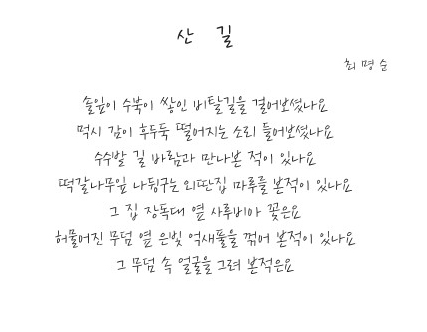 산 길
최 명 순
솔잎이 수북이 쌓인 비탈길을 걸어보셨나요
먹시 감이 후두둑 떨어지는 소리 들어보셨나요
수수밭 길 바람과 만나본 적이 있나요
떡갈나무잎 나뒹구는 외딴집 마루를 본적이 있나요
그 집 장독대 옆 사루비아 꽃은요
허물어진 무덤 옆 은빛 억새풀을 꺾어 본적이 있나요
그 무덤 속 얼굴을 그려 본적은요